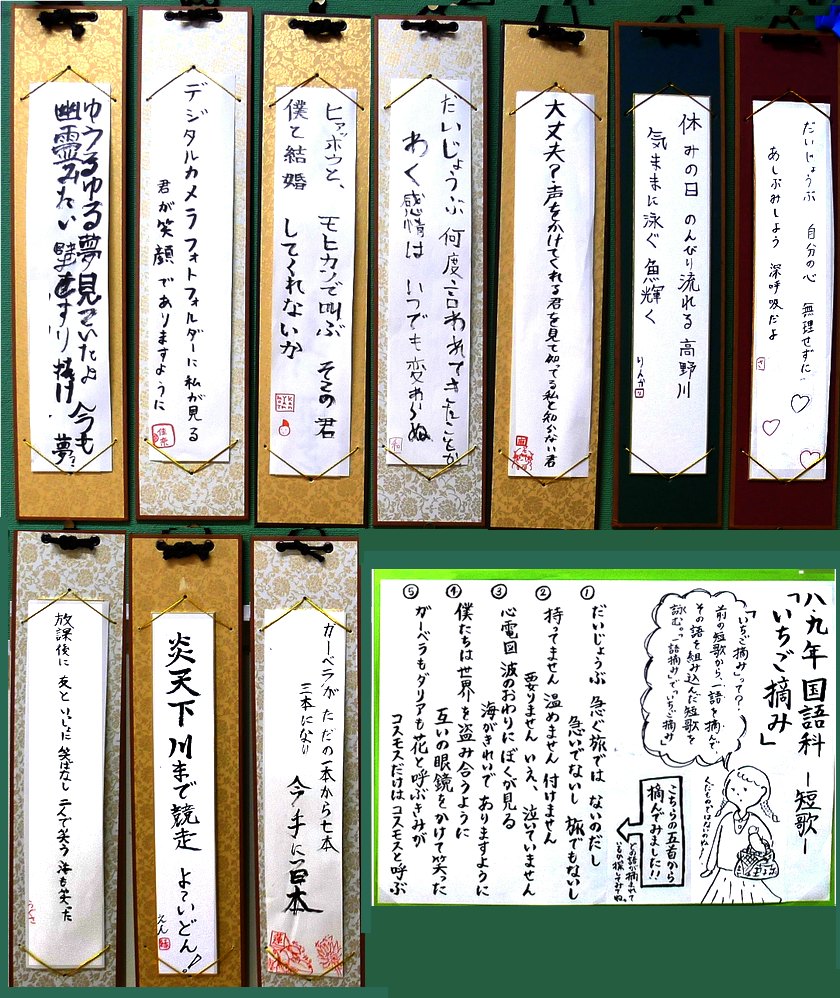 だいじょうぶ 自分の心 無理せずに
あしぶみしよう 深呼吸だよ
休みの日 のんびり流れる 高野川
気ままに泳ぐ 魚輝く
りんか
大丈夫?声をかけてくれる君を見て如てる私と知かない君
だいじょうぶ 何度言われてきたことか
わく感情は いつでも変わらぬ
和
ヒァッホウと、 モヒカンで叫ぶ そこの君
僕と結婚 してくれないか
デジタルカメラフォトフォルダーに私が見る
君が笑顔でありますように
ゆうるゆる夢見ていたよ 今も
幽霊みたい
夢
八・九年国語科 ー短歌ー
「いちご摘み」
「いちご摘み」って?
前の短歌から、一語を摘んで、
その語を組み込んだ短歌を
詠む。“一語摘み”で“いちご摘み”
くだものではないのね!
こちらの五首から
摘んでみました!!
どの語が摘まれて
いるか探してみてね。
① だいじょうぶ 急ぐ旅では ないのだし
急いでないし 旅でもないし
② 持ってません 温めません 付けません
要りません いえ、泣いていません
③ 心電図 波のおわりにぼくが見る
海がきれいで ありますように
④ 僕たちは世界を盗み合うように
互いの眼鏡をかけて笑った
⑤ ガーベラもダリアも花と呼ぶきみが
コスモスだけはコスモスと呼ぶ
ガーベラが ただの一本から七本
三本になり 今手に百本
炎天下川まで競走 よーいどん!
えん
放課後に 友といっしょに 笑ばなし 二人で笑う 海も笑った